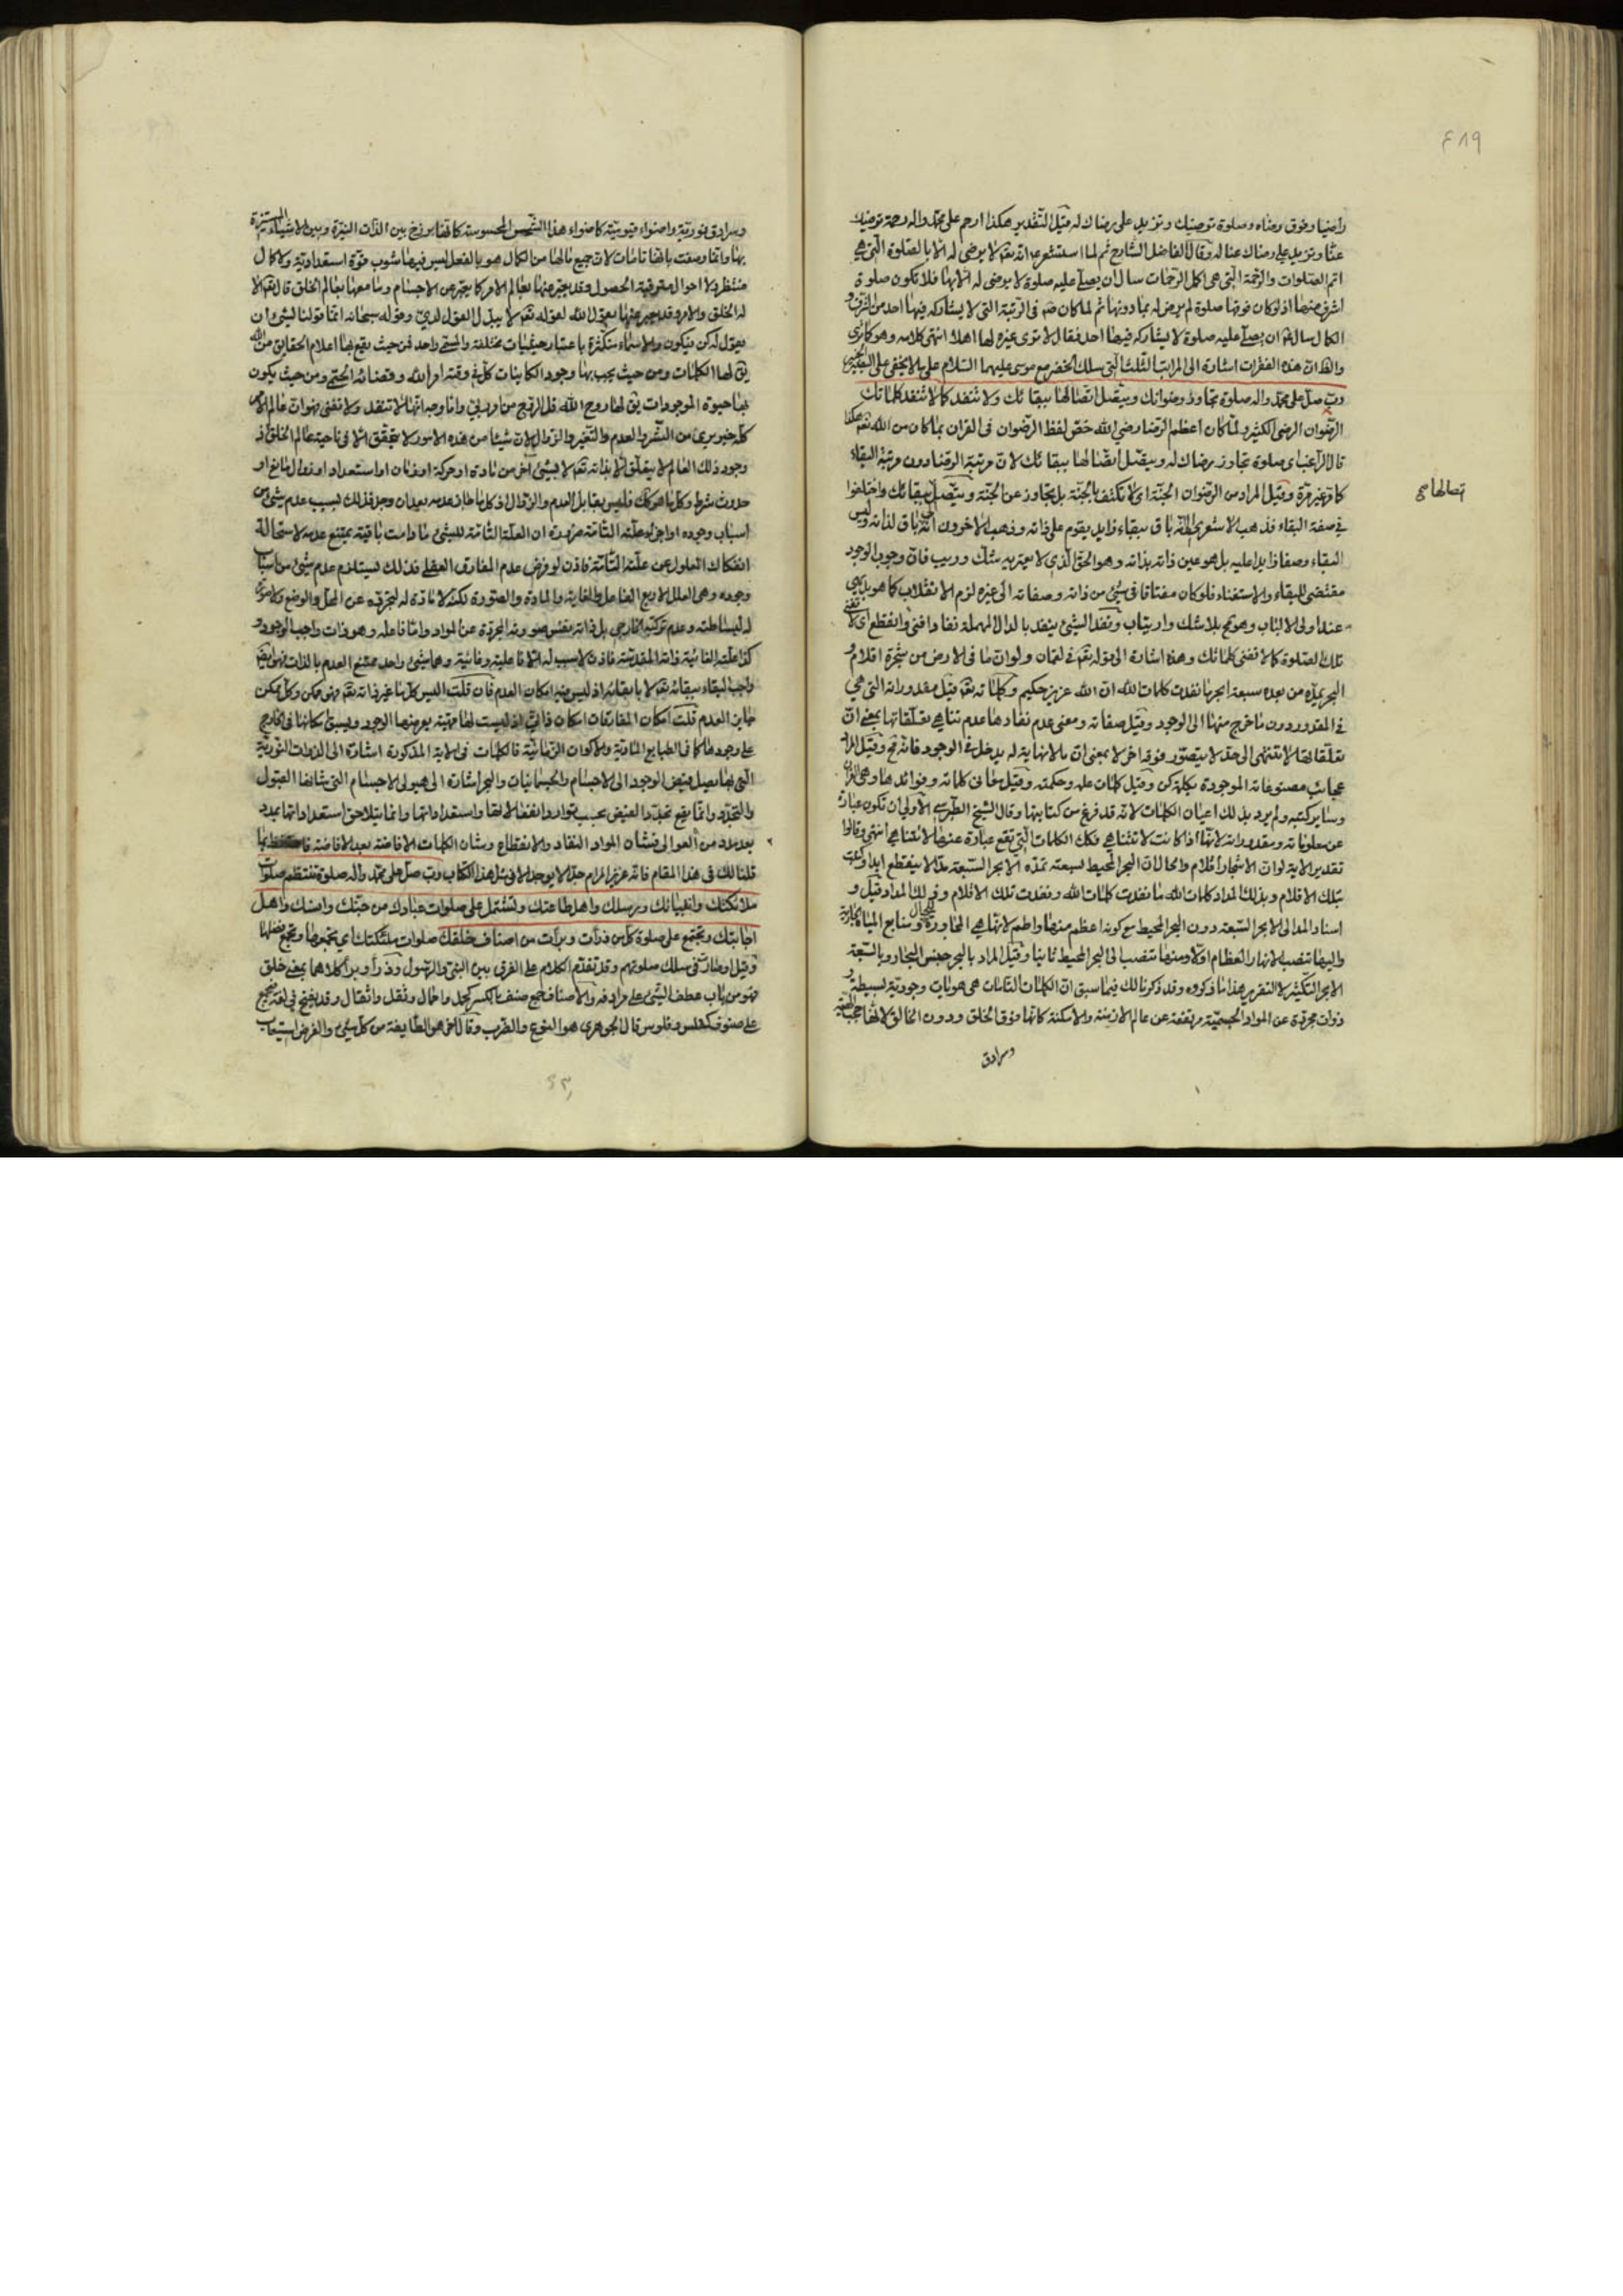 ٤٨٩
راضيا وفوق رضاه وصلوة ترضيك وتزيد على رضاك له قيل التقدير هكذا ارحم على محمد واله رحمة ترضيك
عنا وتزيد على رضاك عنا له وقال الفاضل الشارح ثم لما استشعر انه تعم لا يرضى له الا بالصلوة التي هي
اتم الصلوات والرحمة التي هي اكمل الرحمات سال ان يصلى عليه صلوة لا يرضى له الا بها فلا تكون صلوة
اشرف منها اذ لو كان فوقها صلوة لم يرض له بما دونها ثم لما كان في الرتبة التي لا يشاركه فيها احد من الشرف و
الكمال سال ان يصلى عليه صلوة لا يشاركه فيها احد فقال لا ترى غيره لها اهلا انتهى كلامه وهو كما ترى
والظ ان هذه الفقرات اشارة الى المراتب الثلث التي سلك الخضر مع موسى عليهما السلام على ما لا يخفى على
رب صل على محمد واله صلوة تجاوز رضوانك ويتصل اتصالها ببقائك ولا تنفد كما لا تنفد كلماتك
الرضوان الرضى الكثير ولما كان اعظم الرضا رضى الله خص لفظ الرضوان في القران بما كان من الله تعم هكذا
قال الراغب اى صلوة تجاوز رضاك له ويتصل اتصالها ببقائك لان مرتبة الرضا دون مرتبة البقاء
كما مر غير مرة وقيل المراد من الرضوان الجنة اى لا تكتف بالجنة بل تجاوز عن الجنة ويتصل ببقائك واختلفوا
اتصالها صح
في صفة البقاء فذهب الاشعرى الى انه باق ببقاء زايد يقوم على ذاته وذهب الاخرون الى انه باق لذاته وليس
البقاء وصفا زايدا عليه بل هو عين ذاته بذاته وهو الحق الذى لا يعتريه شك وريب فان وجوب الوجود
مقتضى للبقاء والاستغناء فلو كان مفتاقا في شىء من ذاته وصفاته الى غيره لزم الانقلاب كما هو بديهى
عند اولى الالباب وهو مح بلا شك وارتياب ونفد الشىء ينفد بالدال المهملة نفادا فنى وانقطع اى لا تفنى
تلك الصلوة كما لا تفنى كلماتك وهذه اشارة الى قوله تعم في لقمان ولو ان ما في الارض من شجرة اقلام و
البحر يمده من بعده سبعة ابحر ما نفدت كلمات الله ان الله عزيز حكيم وكلماته تعم قيل مقدوراته التي هي
في المقدور دون ما خرج منها الى الوجود وقيل صفاته ومعنى عدم نفادها عدم تناهى تعلقاتها بمعنى ان
تعلقاتها لا تنتهى الى حد لا يتصور فوقه اخر لا بمعنى ان ما لا نهاية له يدخل في الوجود فانه مح وقيل المراد
عجائب مصنوعاته الموجودة بكلمة كن وقيل كلمات علمه وحكمته وقيل معانى كلماته وفوائدها وهى القران
وساير كتبه ولم يرد بذلك اعيان الكلمات لانه قد فرغ من كتابتها وقال الشيخ الطبرسى الاولى ان تكون عبارة
عن معلوماته ومقدوراته لانها اذا كانت لا تتناهى فكك الكلمات التي تقع عبارة عنها لا تتناهى انتهى وقالوا
تقدير الاية لو ان الاشجار اقلام والحال ان البحر المحيط بسعته تمده الابحر السبعة مدا لا ينقطع ابدا وكتبت
بتلك الاقلام وبذلك المداد كلمات الله ما نفدت كلمات الله ونفدت تلك الاقلام وذلك المداد قيل و
اسناد المد الى الابحر السبعة دون البحر المحيط مع كونه اعظم منها واطم لانها هي المجاورة للجبال ومنابع المياه الجارية
واليها تنصب الانهار العظام اولا ومنها تنصب الى البحر المحيط ثانيا وقيل المراد بالبحر جنس البحار وبالسبعة
الابحر التكثير لا التقدير هذا ما ذكروه وقد ذكرنا لك فيما سبق ان الكلمات التامات هى هويات وجودية بسيطة و
ذوات مجردة عن المواد الجسمية مرتفعة عن عالم الازمنة والامكنة كانها فوق الخلق ودون الخالق لانها حجب الهية
وسرادق
وسرادق نورية واضواء قيومية كاضواء هذا الشمس المحسوسة كانها برزخ بين الذات النيرة وبين الاشياء المستنيرة
بها وانما وصفت بانها تامات لان جميع ما لها من الكمال هو بالفعل ليس فيها شوب قوة استعدادية ولا كمال
منتظر ولا احوال مترقبة الحصول وقد يعبر عنها بعالم الامر كما يعبر عن الاجسام وما معها بعالم الخلق قال تعم الا
له الخلق والامر وقد يعبر عنها بقول الله لقوله تعم لا يبدل القول لدى وقوله سبحانه انما قولنا لشىء ان
نقول له كن فيكون والاسماء متكثرة باعتبار حيثيات مختلفة والمسمى واحد فمن حيث يقع بها اعلام الحقايق من الله
يق لها الكلمات ومن حيث يجب بها وجود الكاينات كل في وقته امر الله وقضائه الحتمى ومن حيث يكون
بها حيوة الموجودات يق لها روح الله قل الروح من امر ربى واما وجه انها لا تنفد ولا تفنى فهو ان عالم الامر
كله خير برىء من الشر والعدم والتغير والزوال لان شيئا من هذه الامور لا يتحقق الا في ناحية عالم الخلق اذ
وجود ذلك العالم لا يتعلق الا بذاته تعم لا بشىء اخر من مادة او حركة او زمان او استعداد او زوال مانع او
حدوث شرط وكل ما هو كك فليس يقابل العدم والزوال اذ كل ما جاز عدمه بعد ان وجد فذلك بسبب عدم شىء من
اسباب وجوده او اجزاء علته التامة ضرورة ان العلة التامة للشىء ما دامت باقية يمتنع عدمه لاستحالة
انفكاك المعلول عن علته التامة فاذن لو فرض عدم المفارق العقلى فذلك يستلزم عدم شىء من اسباب
وجوده وهى العلل الاربع الفاعل والغاية والمادة والصورة لكنه لا مادة له لتجرده عن المحل والوضع ولا صورة
له لبساطته وعدم تركبه الخارجى بل ذاته بنفس صورته المجردة عن المواد واما فاعله وهو ذات واجب الوجود و
كذا علته الغائية ذاته المقدسة فاذن لا سبب له الا فاعلية وغائية وهما شىء واحد ممتنع العدم بالذات فهو ايضا
واجب البقاء ببقائه تعم لا بابقائه اذ ليس فيه امكان العدم فان قلت اليس كل ما غير ذاته تعم فهو ممكن وكل ممكن
جايز العدم قلت امكان المفارقات امكان ذاتى اذ ليست لها مهية يعرضها الوجود ويسبق مكانها في الخارج
على وجودها كما في الطبايع المادية والاكوان الزمانية فالكلمات في الاية المذكورة اشارة الى الذوات النورية
التي بها يصل فيض الوجود الى الاجسام والجسمانيات والبحر اشارة الى هيولى الاجسام التي شانها القبول
والتجدد وانما يقع تجدد الفيض بحسب توارد انفعالاتها واستعداداتها وانما يتلاحق استعداداتها بمدد
بعد مدد من العوالى فشان المواد النفاد والانقطاع وشان الكلمات الافاضة بعد الافاضة
قلنا لك في هذا المقام فانه عزيز المرام جدا لا يوجد الا في مثل هذا الكتاب رب صل على محمد واله صلوة تنتظم صلوات
ملائكتك وانبيائك ورسلك واهل طاعتك وتشتمل على صلوات عبادك من جنك وانسك واهل
اجابتك وتجتمع على صلوة كل من ذرات وبرات من اصناف خلقك صلوات ملئكتك اى يجمعها ويجمع فضلها
وقيل في سلك صلوتهم وقد تقدم الكلام على الفرق بين النبى والرسول وذرأ وبرأ كلاهما بمعنى خلق
فهو من باب عطف الشىء على مرادفه والاصناف جمع صنف بالكسر كحمل واحمال وثقل واثقال وقد يفتح في لغة فيجمع
على صنوف كفلس وفلوس قال الجوهرى هو النوع والضرب وقال هو الطايفة من كل شىء والغرض استيعاب